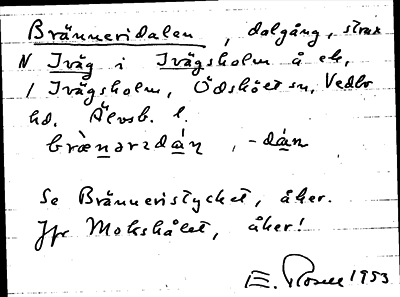 Bränneridalen, dalgång, strax
N Iväg i Ivägsholm å ek,
1 Ivågsholm, Ödsköet sn, Vedbo
hd. Älvsb. l.
brænərɩdán, -dán
Se Bränneristycket, åker.
Jfr Mokskålet, åker!
E. Rosell 1953